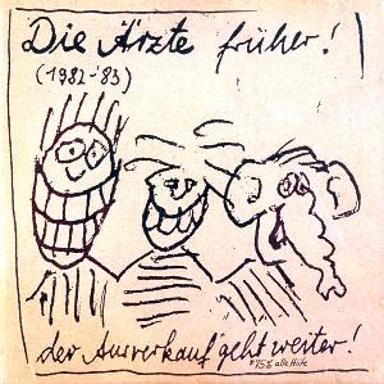 Die Ärzte früher!
(1982-'83)
der Ausverkauf geht weiter!
alle Hits